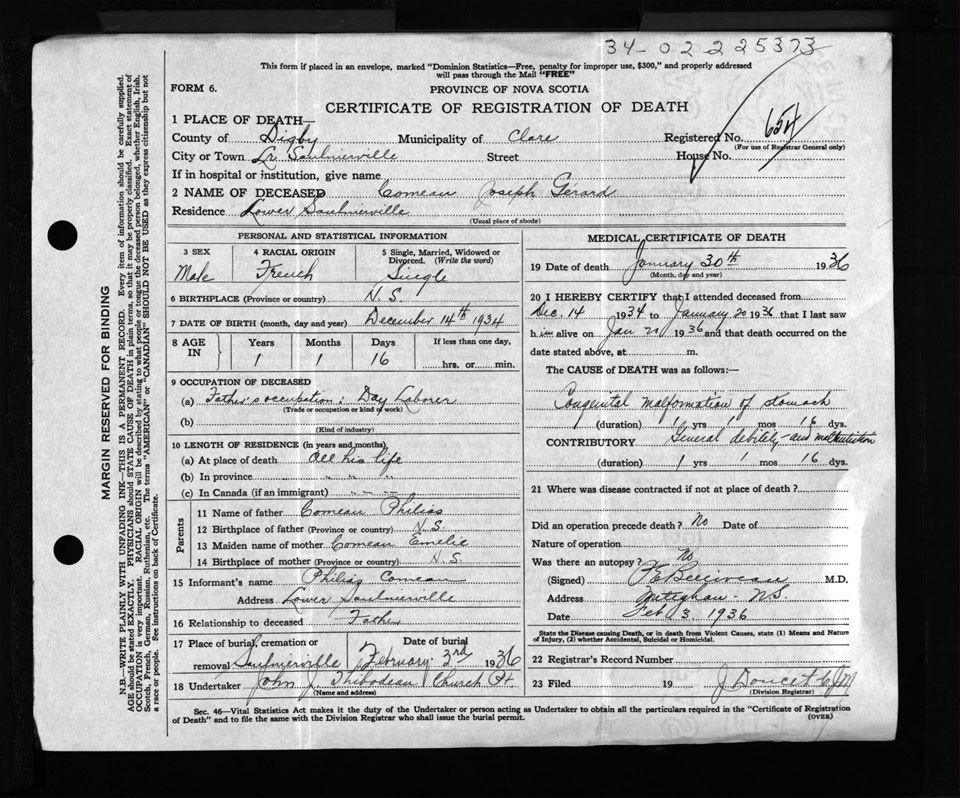 34-02-225373
This form if placed in an envelope, marked "Dominion Statistics—Free, penalty for improper use, $300," and properly addressed
will pass through the Mail "FREE"
FORM 6. PROVINCE OF NOVA SCOTIA
CERTIFICATE OF REGISTRATION OF DEATH
1 PLACE OF DEATH—
County of Digby Municipality of Clare Registered No. 654
(For use of Registrar General only)
City or Town Lr. Saulnierville Street House No.
If in hospital or institution, give name
2 NAME OF DECEASED Comeau Joseph Gerard
Residence Lower Saulnierville
(Usual place of abode)
PERSONAL AND STATISTICAL INFORMATION
3 SEX 4 RACIAL ORIGIN 5 Single, Married, Widowed or
Divorced. (Write the word)
Male French Single
6 BIRTHPLACE (Province or country) N.S.
7 DATE OF BIRTH (month, day and year) December 14th 1934
8 AGE IN Years Months Days If less than one day,
1 1 16 hrs. or min.
9 OCCUPATION OF DECEASED
(a) Father's occupation: Day Laborer
(Trade or occupation or kind of work)
(b)
(Kind of industry)
10 LENGTH OF RESIDENCE (in years and months)
(a) At place of death All his life
(b) In province " " "
(c) In Canada (if an immigrant) - - -
Parents
11 Name of father Comeau Philias
12 Birthplace of father (Province or country) N.S.
13 Maiden name of mother Comeau Emelie
14 Birthplace of mother (Province or country) N.S.
15 Informant's name Philias Comeau
Address Lower Saulnierville
16 Relationship to deceased Father
17 Place of burial, cremation or Date of burial
removal Saulnierville February 3rd 1936
18 Undertaker John J Thibodeau Church Pt.
(Name and address)
MEDICAL CERTIFICATE OF DEATH
19 Date of death January 30th 1936
(Month, day and year)
20 I HEREBY CERTIFY that I attended deceased from
Dec. 14 1934 to January 20 1936 that I last saw
him alive on Jan 21 1936 and that death occurred on the
date stated above, at m.
The CAUSE of DEATH was as follows:—
Congenital malformation of stomach
(duration) 1 yrs 1 mos 16 dys.
CONTRIBUTORY General debility and malnutrition
(duration) 1 yrs 1 mos 16 dys.
21 Where was disease contracted if not at place of death?
Did an operation precede death? No Date of
Nature of operation
Was there an autopsy? No
(Signed) M.D.
Address Meteghan - N.S.
Date Feb 3 1936
State the Disease causing Death, or in death from Violent Causes, state (1) Means and Nature
of Injury, (2) whether Accidental, Suicidal or Homicidal.
22 Registrar's Record Number
23 Filed 19 J Doucet
(Division Registrar)
Sec. 46—Vital Statistics Act makes it the duty of the Undertaker or person acting as Undertaker to obtain all the particulars required in the "Certificate of Registration
of Death" and to file the same with the Division Registrar who shall issue the burial permit. (OVER)
MARGIN RESERVED FOR BINDING
N.B.—WRITE PLAINLY WITH UNFADING INK—THIS IS A PERMANENT RECORD. Every item of information should be carefully supplied.
AGE should be stated EXACTLY. PHYSICIANS should STATE CAUSE OF DEATH in plain terms, so that it may be properly classified. Exact statement of
OCCUPATION is very important. RACIAL ORIGIN will be described by stating to what people or tongue the deceased person belonged, whether English, Irish,
Scotch, French, German, Russian, Ruthenian, etc. The terms "AMERICAN" or "CANADIAN" SHOULD NOT BE USED as they express citizenship but not
a race or people. See instructions on back of Certificate.